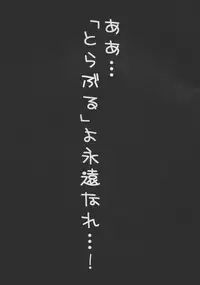 ああ…
「とらぶる」よ永遠なれ…!